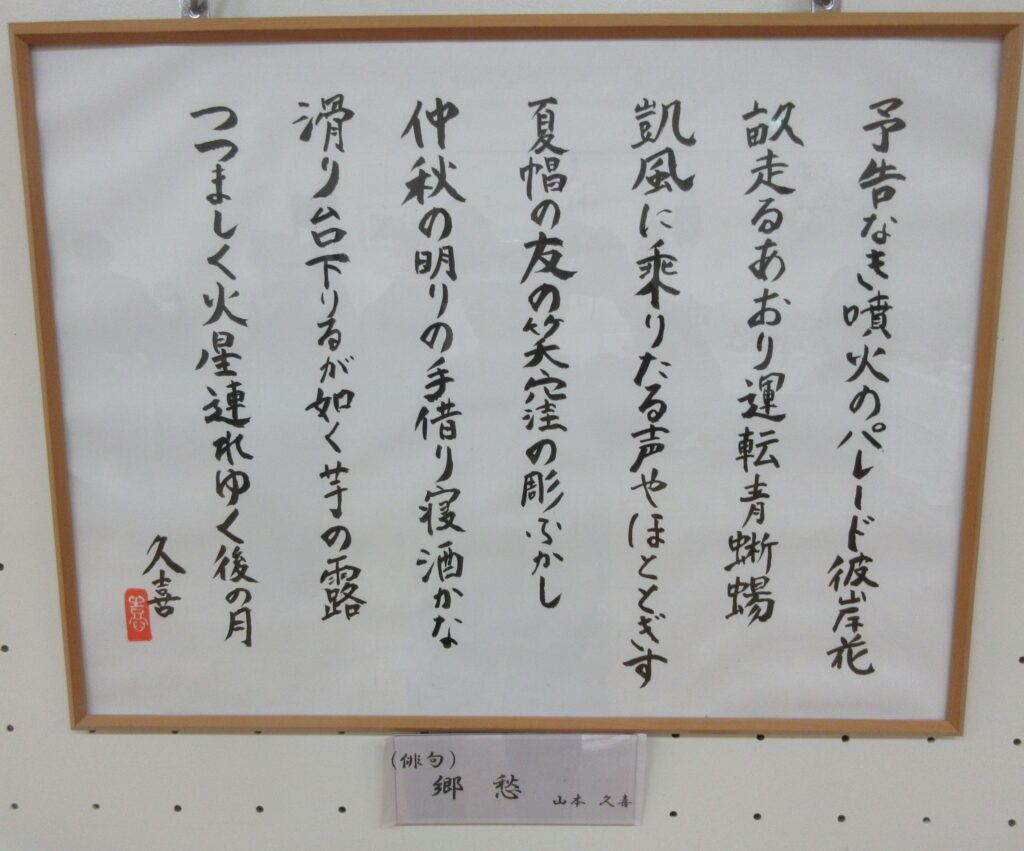 予告なき噴火のパレード彼岸花
畝走るあおり運転青蜥蜴
凱風に乗りたる声やほととぎす
夏帽の友の笑窪の彫ふかし
仲秋の明りの手借り寝酒かな
滑り台下りるが如く芋の露
つつましく火星連れゆく後の月
久喜
喜
(俳句)
郷愁
山本 久喜